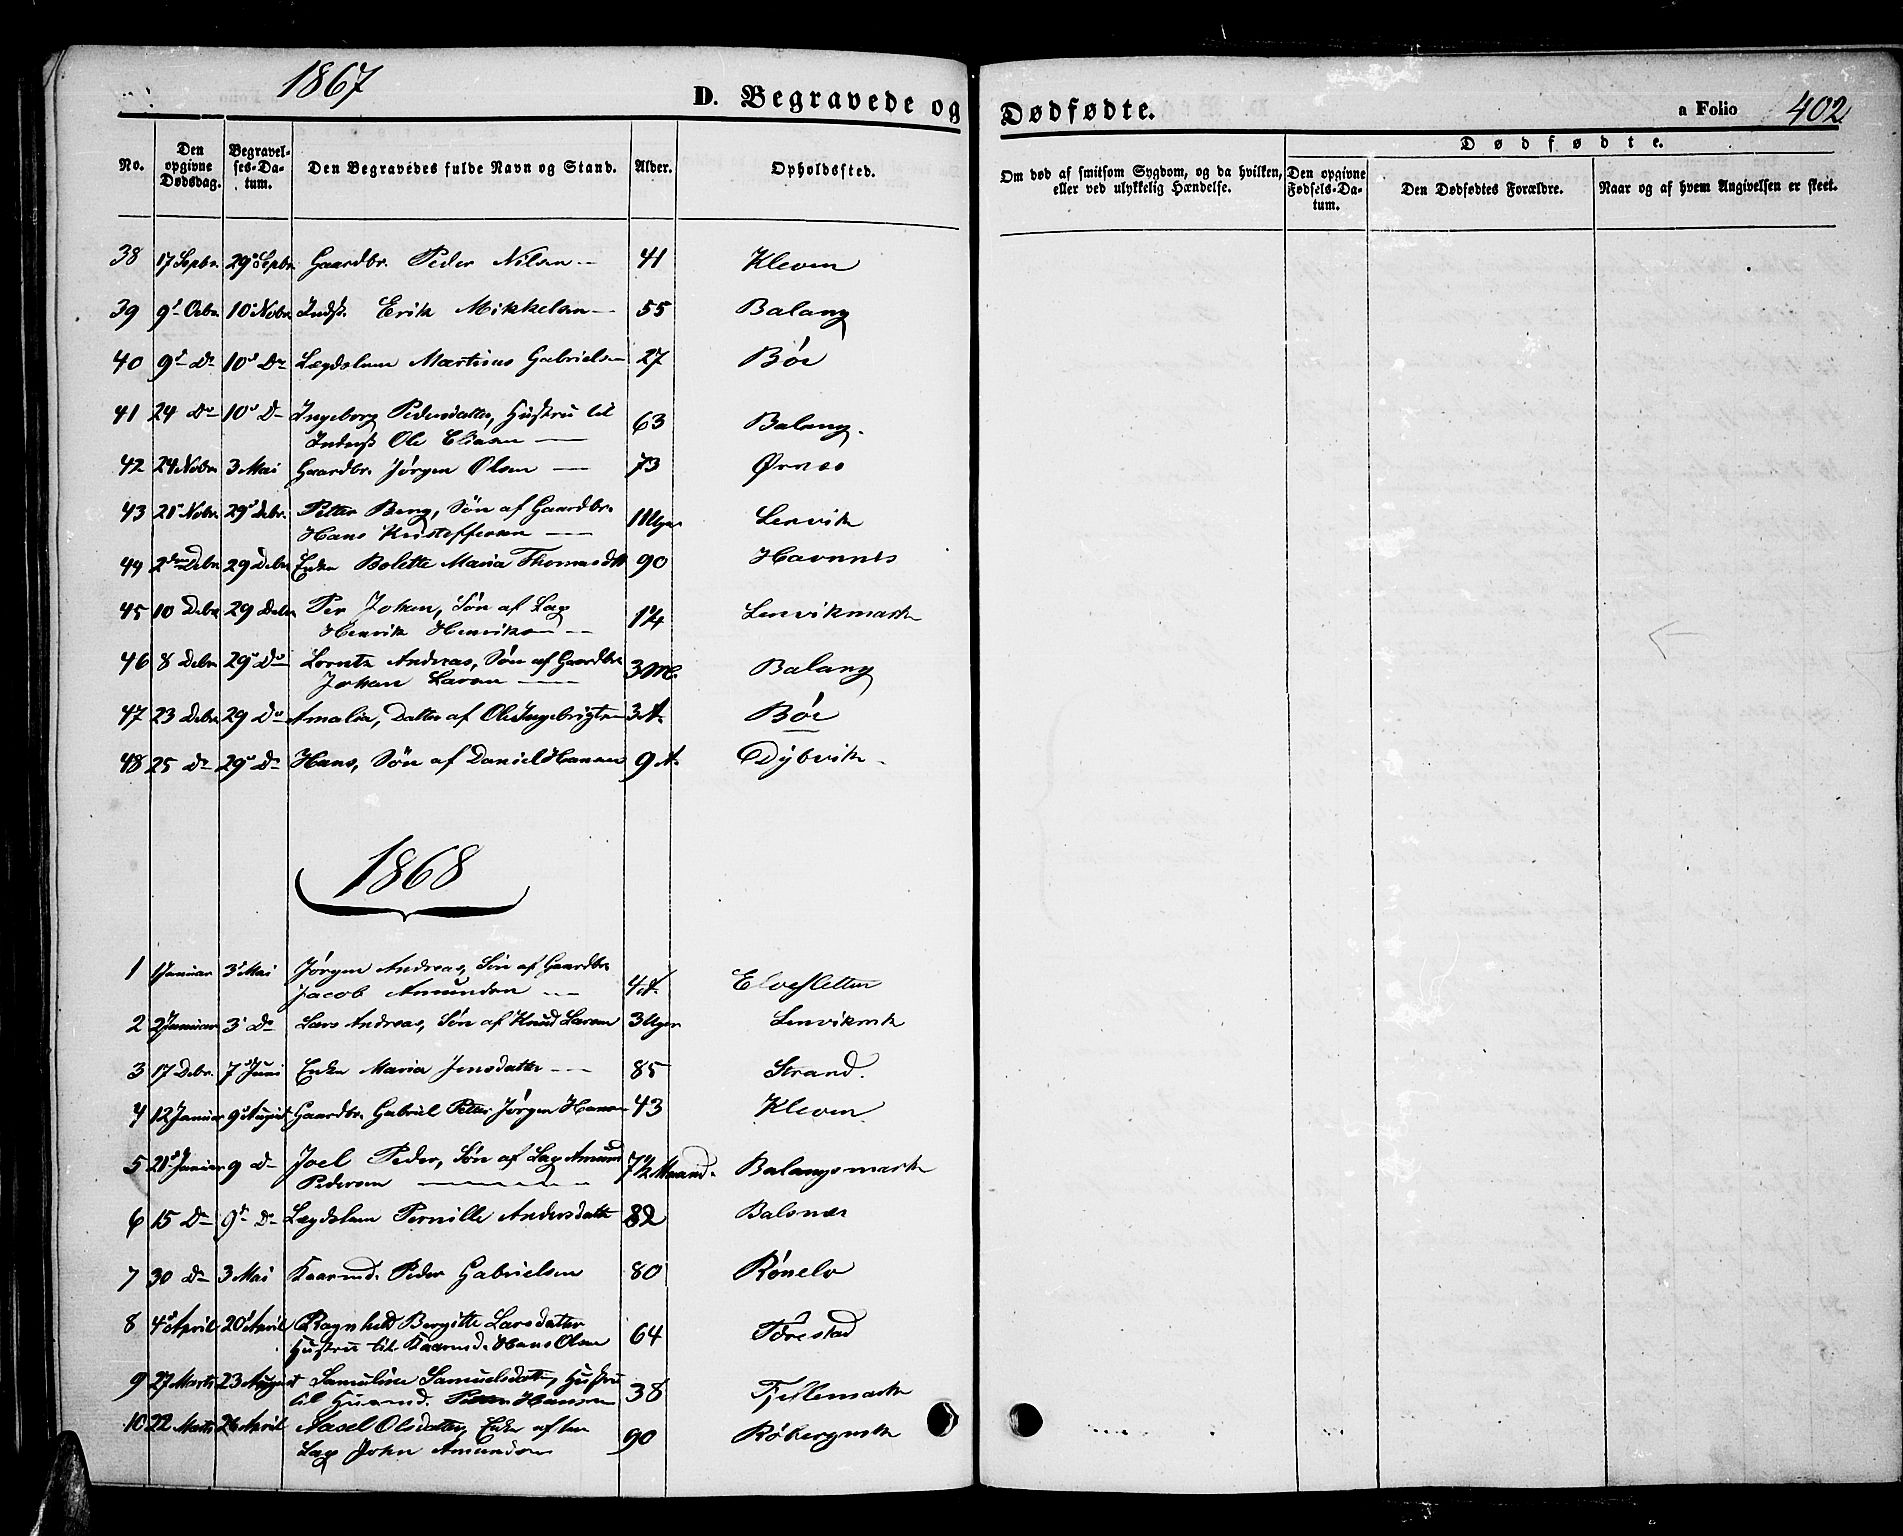 1867
D. Begravede og Dødfødte.
a Folio 402
No.
Den opgivne Dødsdag.
Begravelses-Datum.
Den Begravedes fulde Navn og Stand.
Alder.
Opholdssted.
Om død af smitsom Sygdom, og da hvilken, eller ved ulykkelig Hændelse.
Dødfødte.
Den opgivne Fødsels-Datum.
Den Dødfødtes Forældre.
Naar og af hvem Angivelsen er skeet.
38 17 Septbr. 29 Septbr. Gaardbr. Peder Nilsen 41 Kleven
39 9 Octbr. 10 Novbr. Indst. Erik Mikkelsen 55 Balang
40 9 Do 10 Do Lægdslem Martinus Gabrielsen 27 Böe
41 24 Do 10 Do Ingeborg Pedersdatter, Hustru til
Inderst Ole Eliasen 63 Balang.
42 24 Novbr. 3 Mai Gaardbr. Jørgen Olsen 73 Ørnes
43 21 Novbr. 29 Debr. Petter Berg, Søn af Gaardbr.
Hans Kristoffersen 1 Uger Lenvik
44 2den Debr. 29 Debr. Enke Bolette Maria Thomasdtt 90 Havnnes
45 10 Debr. 29 Debr. Per Johan, Søn af Lap
Henrik Henriksen 1¼ Lenvikmark
46 8 Debr. 29 Do Lorentz Andreas, Søn af Gaardbr.
Johan Larsen 3 M. Balang
47 23 Debr. 29 Do Amalia, Datter af Ole Ingebrigtsen 3 A. Böe
48 25 Do 29 Do Hans, Søn af Daniel Hansen 9 A. Dybvik
1868
1 1 Januar 3 Mai Jørgen Andreas, Søn af Gaardbr.
Jacob Amundsen 4 A. Elvesletten
2 2 Januar 3 Do Lars Andreas, Søn af Knud Larsen 3 Uger Lenvikmrk
3 17 Debr. 7 Juni Enke Maria Jensdatter 85 Strand.
4 12 Januar 9 August Gaardbr. Gabriel Petter Jørgen Hansen 43 Kleven
5 21 Januar 9 Do Joel Peder, Søn af Lap Amund
Pedersen 7½ Maaned. Balangsmark
6 15 Do 9 Do Lægdslem Pernille Andersdatter 82 Balsnæs
7 30 Do 3 Mai Kaarmd. Peder Gabrielsen 80 Rönelv
8 4 April 20 April Ragnhild Bergitte Larsdatter
Hustru til Kaarmd. Hans Olsen 64 Tørestad
9 27 Marts 23 August Samuline Samuelsdatter, Hustru
til Husmd. Hansen 38 Fjellemark
10 22 Marts 26 April Aasel Olsdatter, Enke efter
Lap John Amundsen 90 Røbergmrk